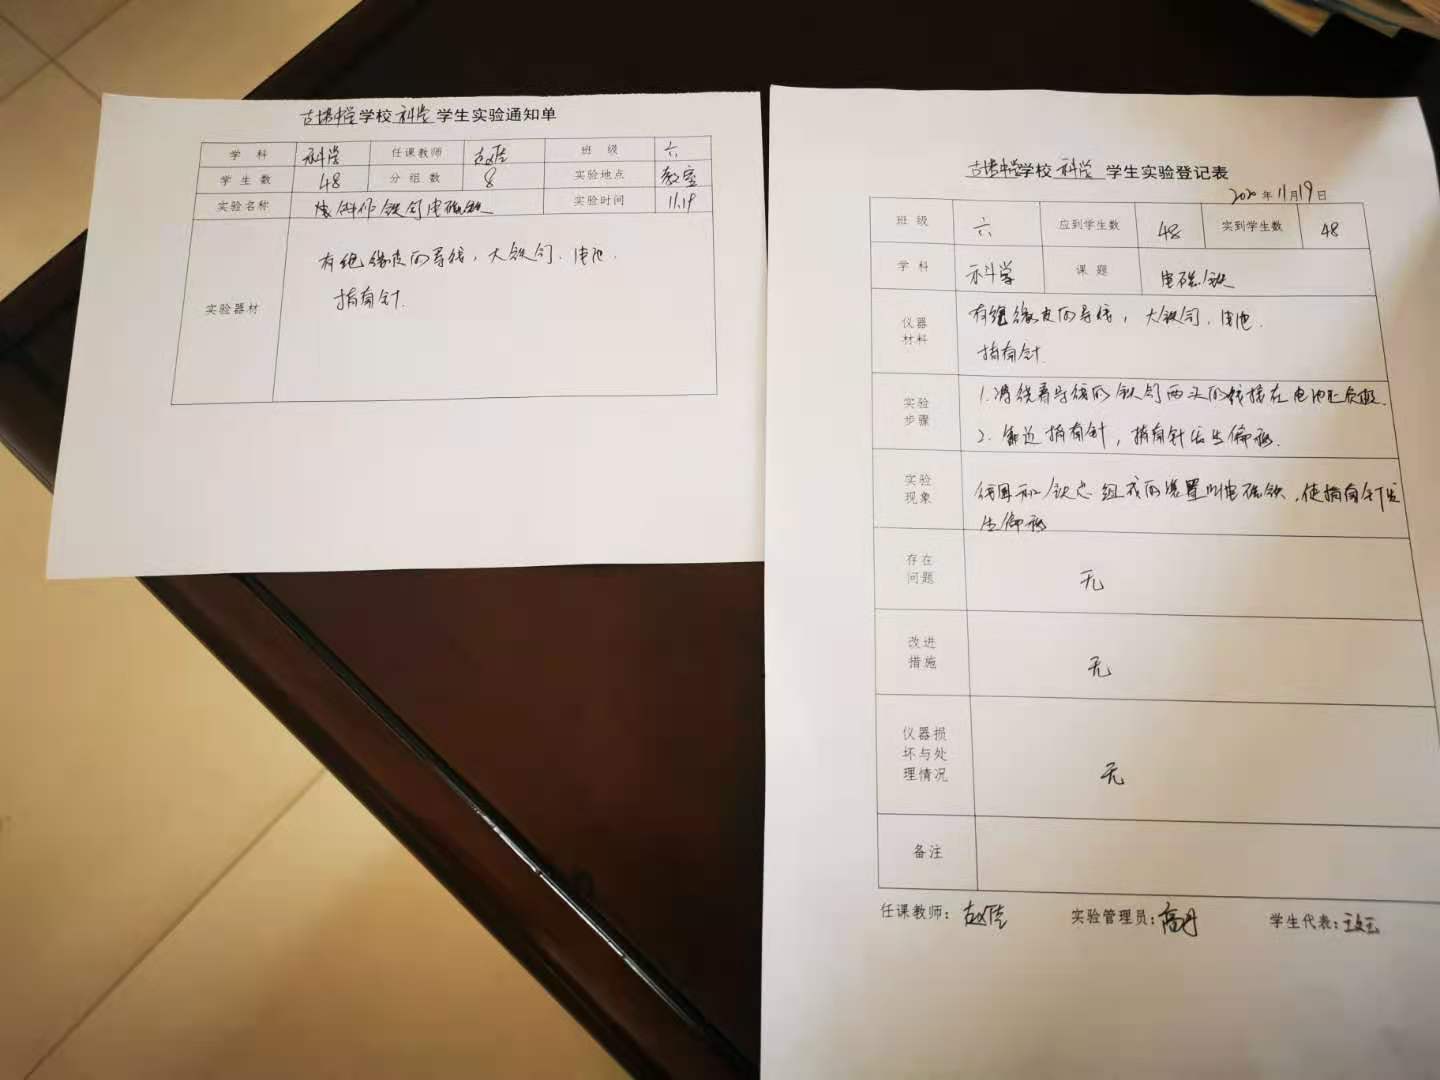 学校 科学 学生实验通知单
学 科 科学 任课教师 赵佳 班 级 六
学 生 数 48 分 组 数 8 实验地点 教室
实验名称 铁钉电磁铁 实验时间 11.19
实验器材
有绝缘皮的导线，大铁钉、电池、
指南针.
学校 科学 学生实验登记表
2020 年 11 月 19 日
班 级 六 应到学生数 48 实到学生数 48
学 科 科学 课 题 电磁铁
仪器
材料
有绝缘皮的导线，大铁钉、电池.
指南针
实验
步骤
1.将绕着导线的铁钉两头的线接在电池正负极.
2.靠近指南针，指南针发生偏移.
实验
现象
线圈和铁芯组成的装置叫电磁铁，使指南针发
生偏移
存在
问题
无
改进
措施
无
仪器损
坏与处
理情况
无
备注
任课教师：赵佳 实验管理员：高丹 学生代表：